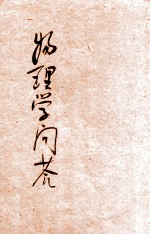 物理学问答